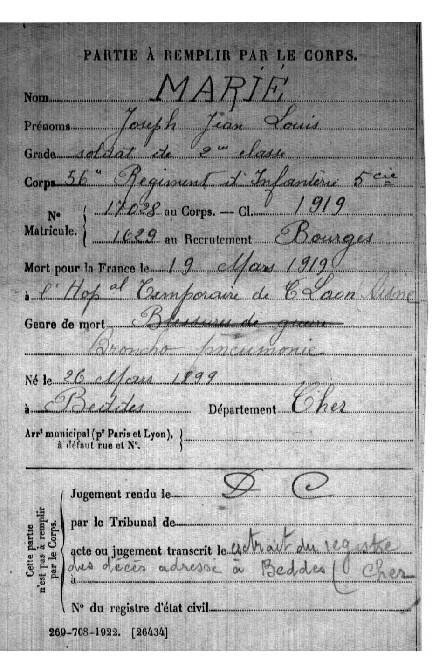 PARTIE À REMPLIR PAR LE CORPS.
Nom MARIÉ
Prénoms Joseph Jean Louis
Grade soldat de 2me classe
Corps 36e Régiment d'Infanterie 5cie
N° Matricule. { 17028 au Corps. — Cl. 1919
1629 au Recrutement Bourges
Mort pour la France le 19 Mars 1919
à l'Hopal Temporaire de Laon Aisne
Genre de mort Blessures de guerre
Broncho pneumonie
Né le 26 Mars 1899
à Beddes Département Cher
Arrt municipal (pr Paris et Lyon), à défaut rue et N°. }
Cette partie n'est pas à remplir par le Corps.
Jugement rendu le D C
par le Tribunal de
acte ou jugement transcrit le extrait du registre
des décès adressé à Beddes (Cher
à
N° du registre d'état civil
269-708-1922. [26434]